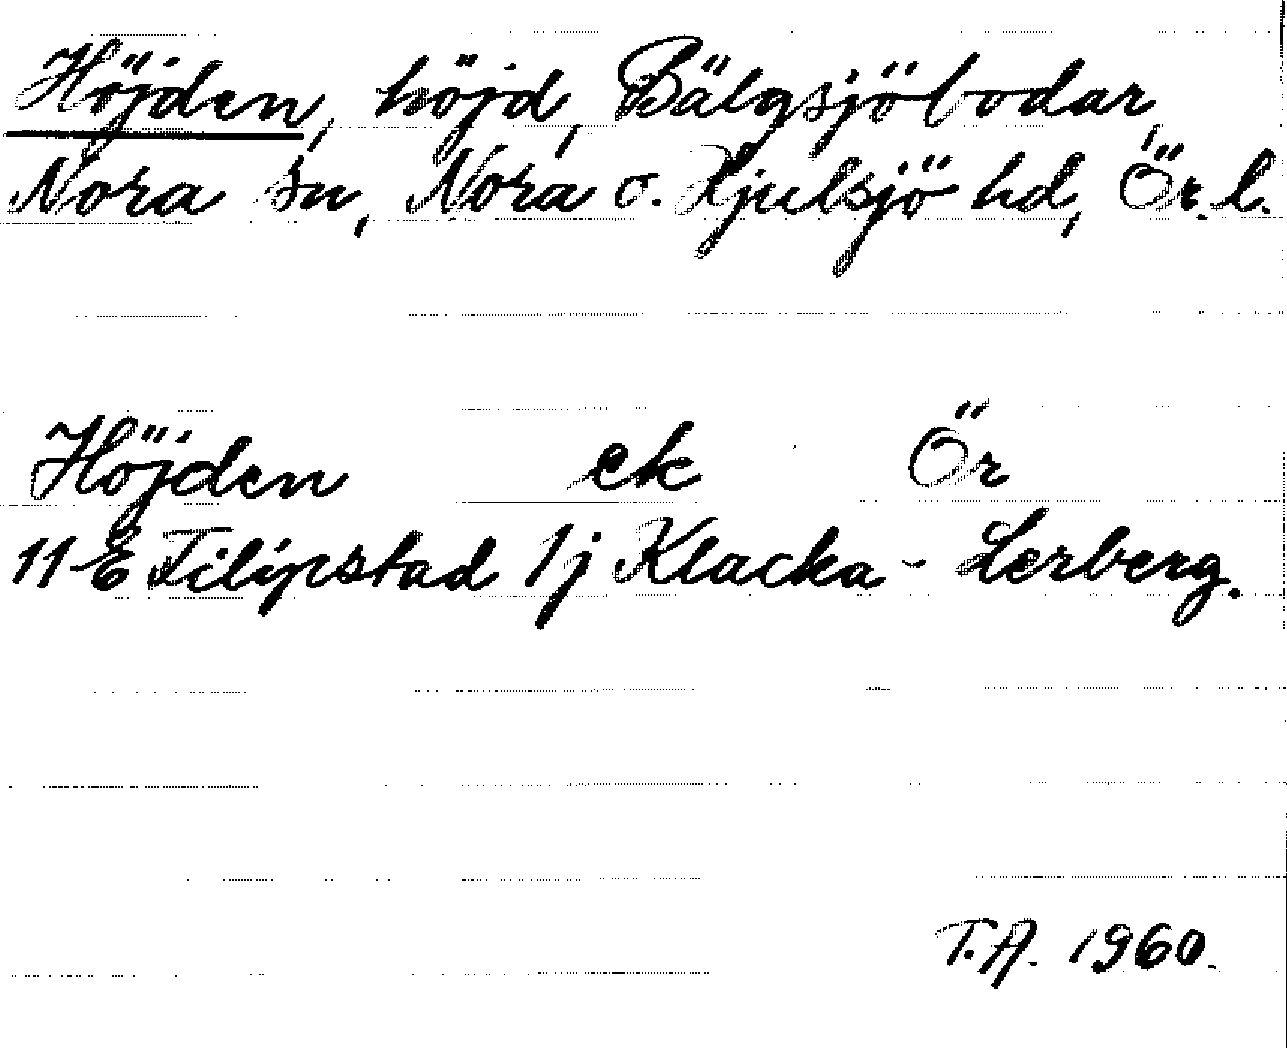 Höjden, höjd, Bälgsjöbodar,
Nora sn, Nora o. Hjulsjö hd, Ör. l.
Höjden ek Ör
11 E Filipstad 1j Klacka - Lerberg.
T.A. 1960.